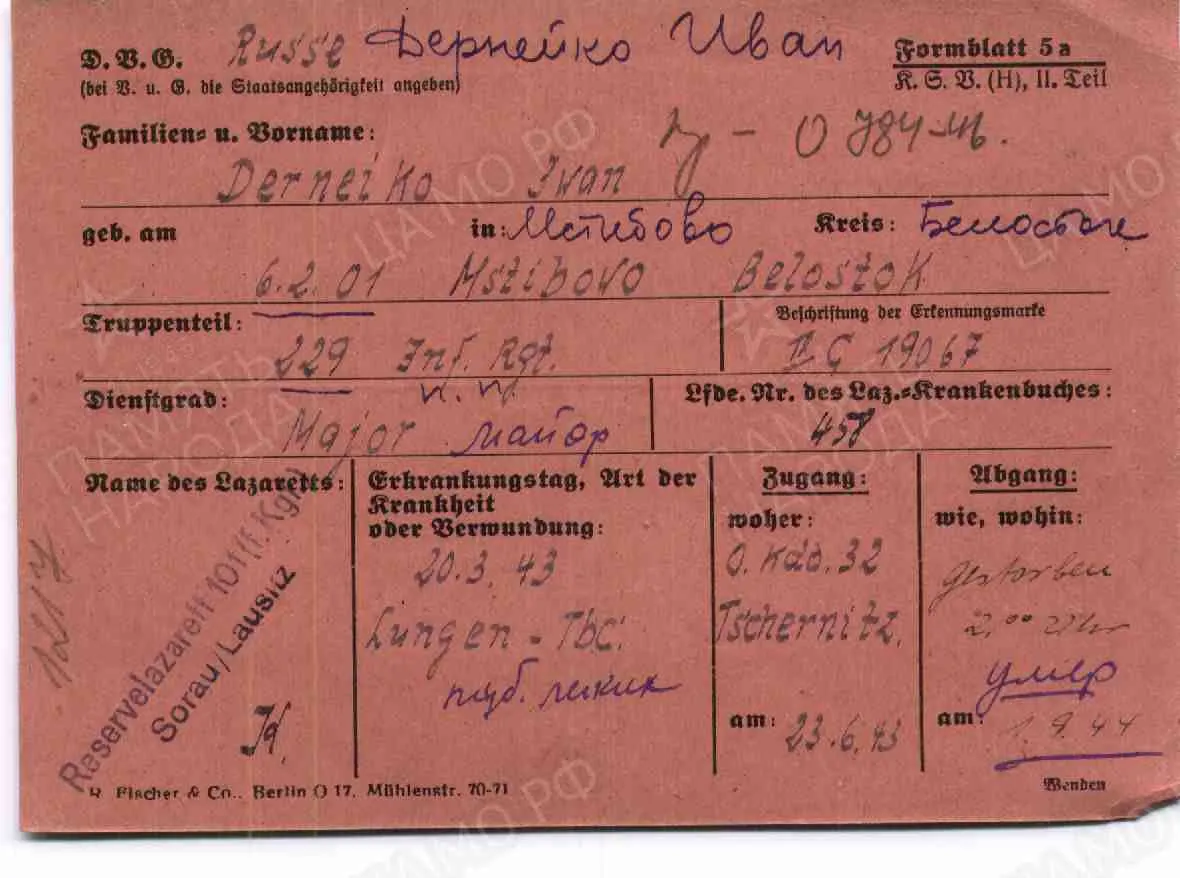 D.V.G. Russe Дернейко Иван Formblatt 5a
(bei V. u. G. die Staatsangehörigkeit angeben) K. S. V. (H), II. Teil
Familien- u. Vorname:
Derneiko Iwan
geb. am in: Мстибово Kreis: Белосток
6.2.01 Mstibovo Belostok
Truppenteil: Beschriftung der Erkennungsmarke
229 Inf. Rgt. 19067
Dienstgrad: Lfde. Nr. des Laz.-Krankenbuches:
Major майор 458
Name des Lazaretts: Erkrankungstag, Art der Krankheit oder Verwundung: Zugang: Abgang:
woher: wie, wohin:
20.3.43 Kdo. 32 gestorben
Lungen-Tbc. Tschernitz. 2.00 Uhr
туб. легких умер
am: 23.6.43 am: 1.9.44
Reservelazarett 101 (f. Kgf.)
Sorau/Lausitz
1217
Fischer & Co., Berlin O 17, Mühlenstr. 70-71 Wenden
ЦАМО РФ
ПАМЯТЬ НАРОДА